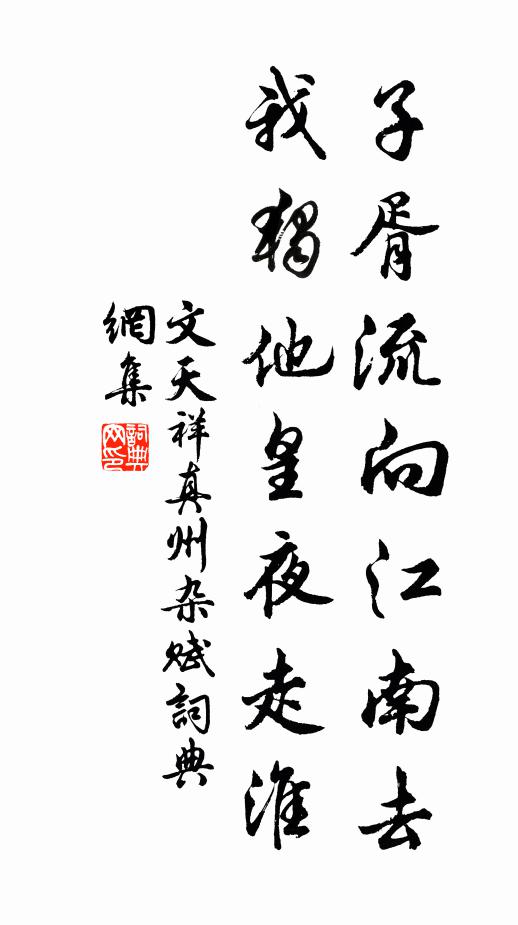 子胥流向江南去
我獨他皇夜走淮
文天祥真州杂赋詞典
網集
詞典網印